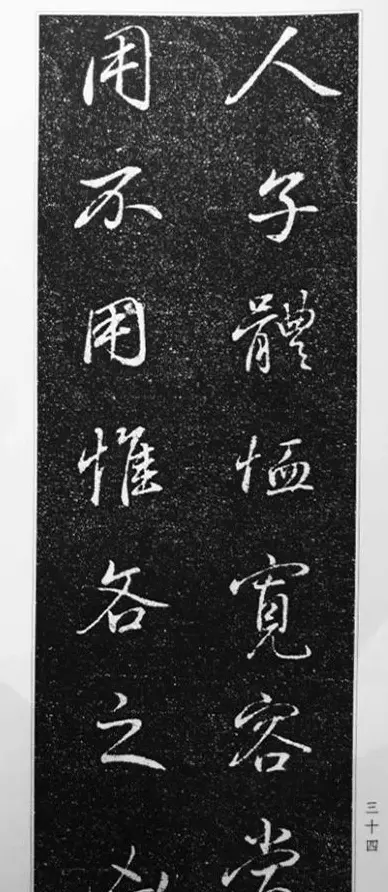 人子體恤寬容
用不用惟各之
三十四